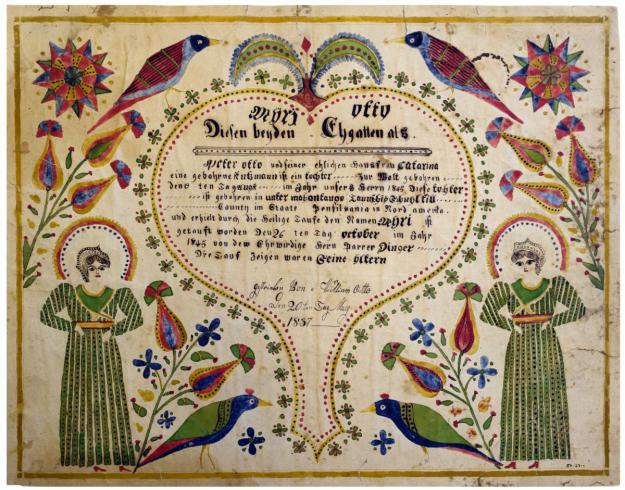 Diesen beyden Ehgatten als.
Peter otto und seiner ehlichen Hausfrau Catarina
eine gebohrne ist ein tochter Zur Welt gebohren
den ten Tag im Jahr unsers Herrn 1845 Diese tochter
ist gebohren in unter township Schuylkill
County im Staate Pensilvania in Nord amerika.
und erhielt durch die Heilige Taufe den Namen ist
getauft worden Den 26 ten Tag october im Jahr
1845 von dem Ehrwirdige Hern Parrer Dinger
Die Tauf Zeigen waren Seine eltern
Gschrieben Von William Otto
Den 20 ten Tag May
1857